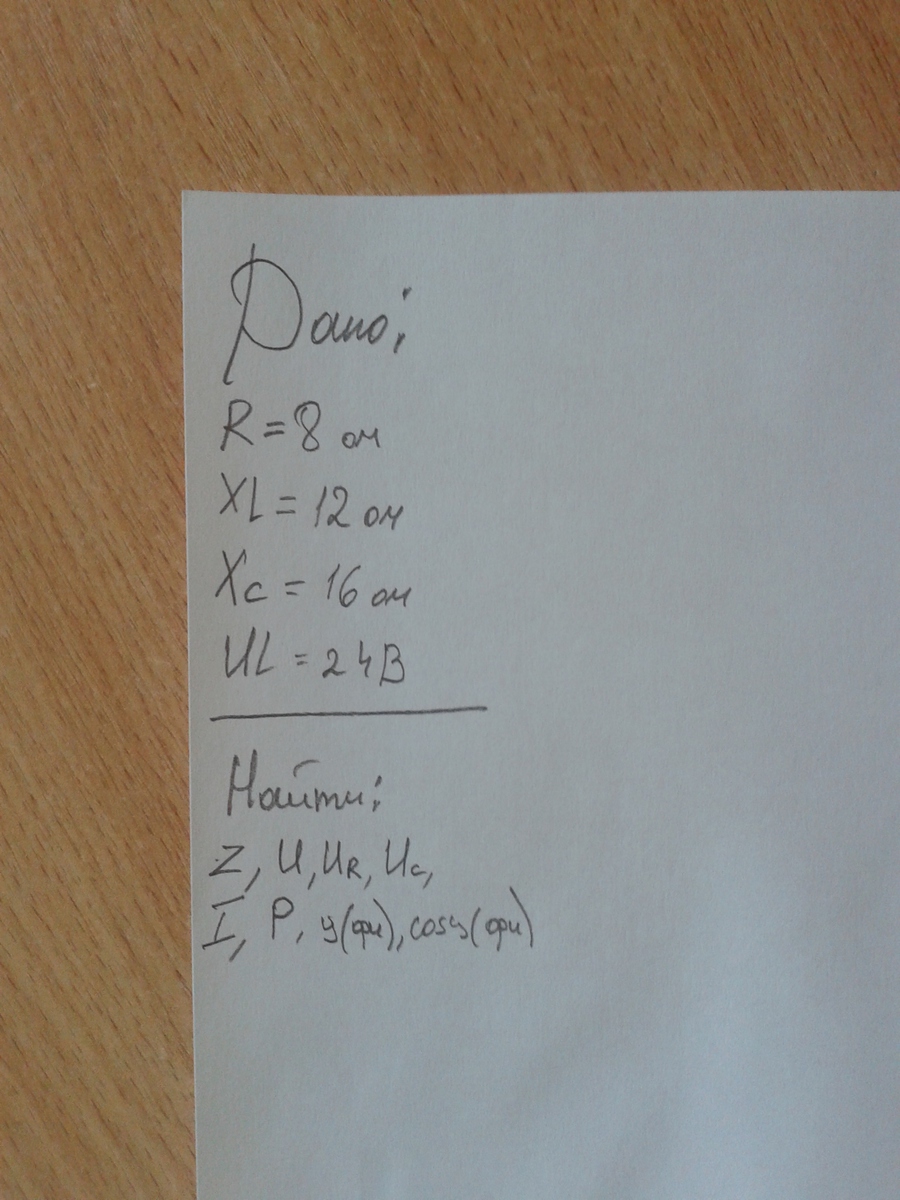 Дано:
R = 8 ом
XL = 12 ом
Xc = 16 ом
UL = 24В
Найти:
Z, U, UR, Uc,
I, P, y(фи), cosy(фи)